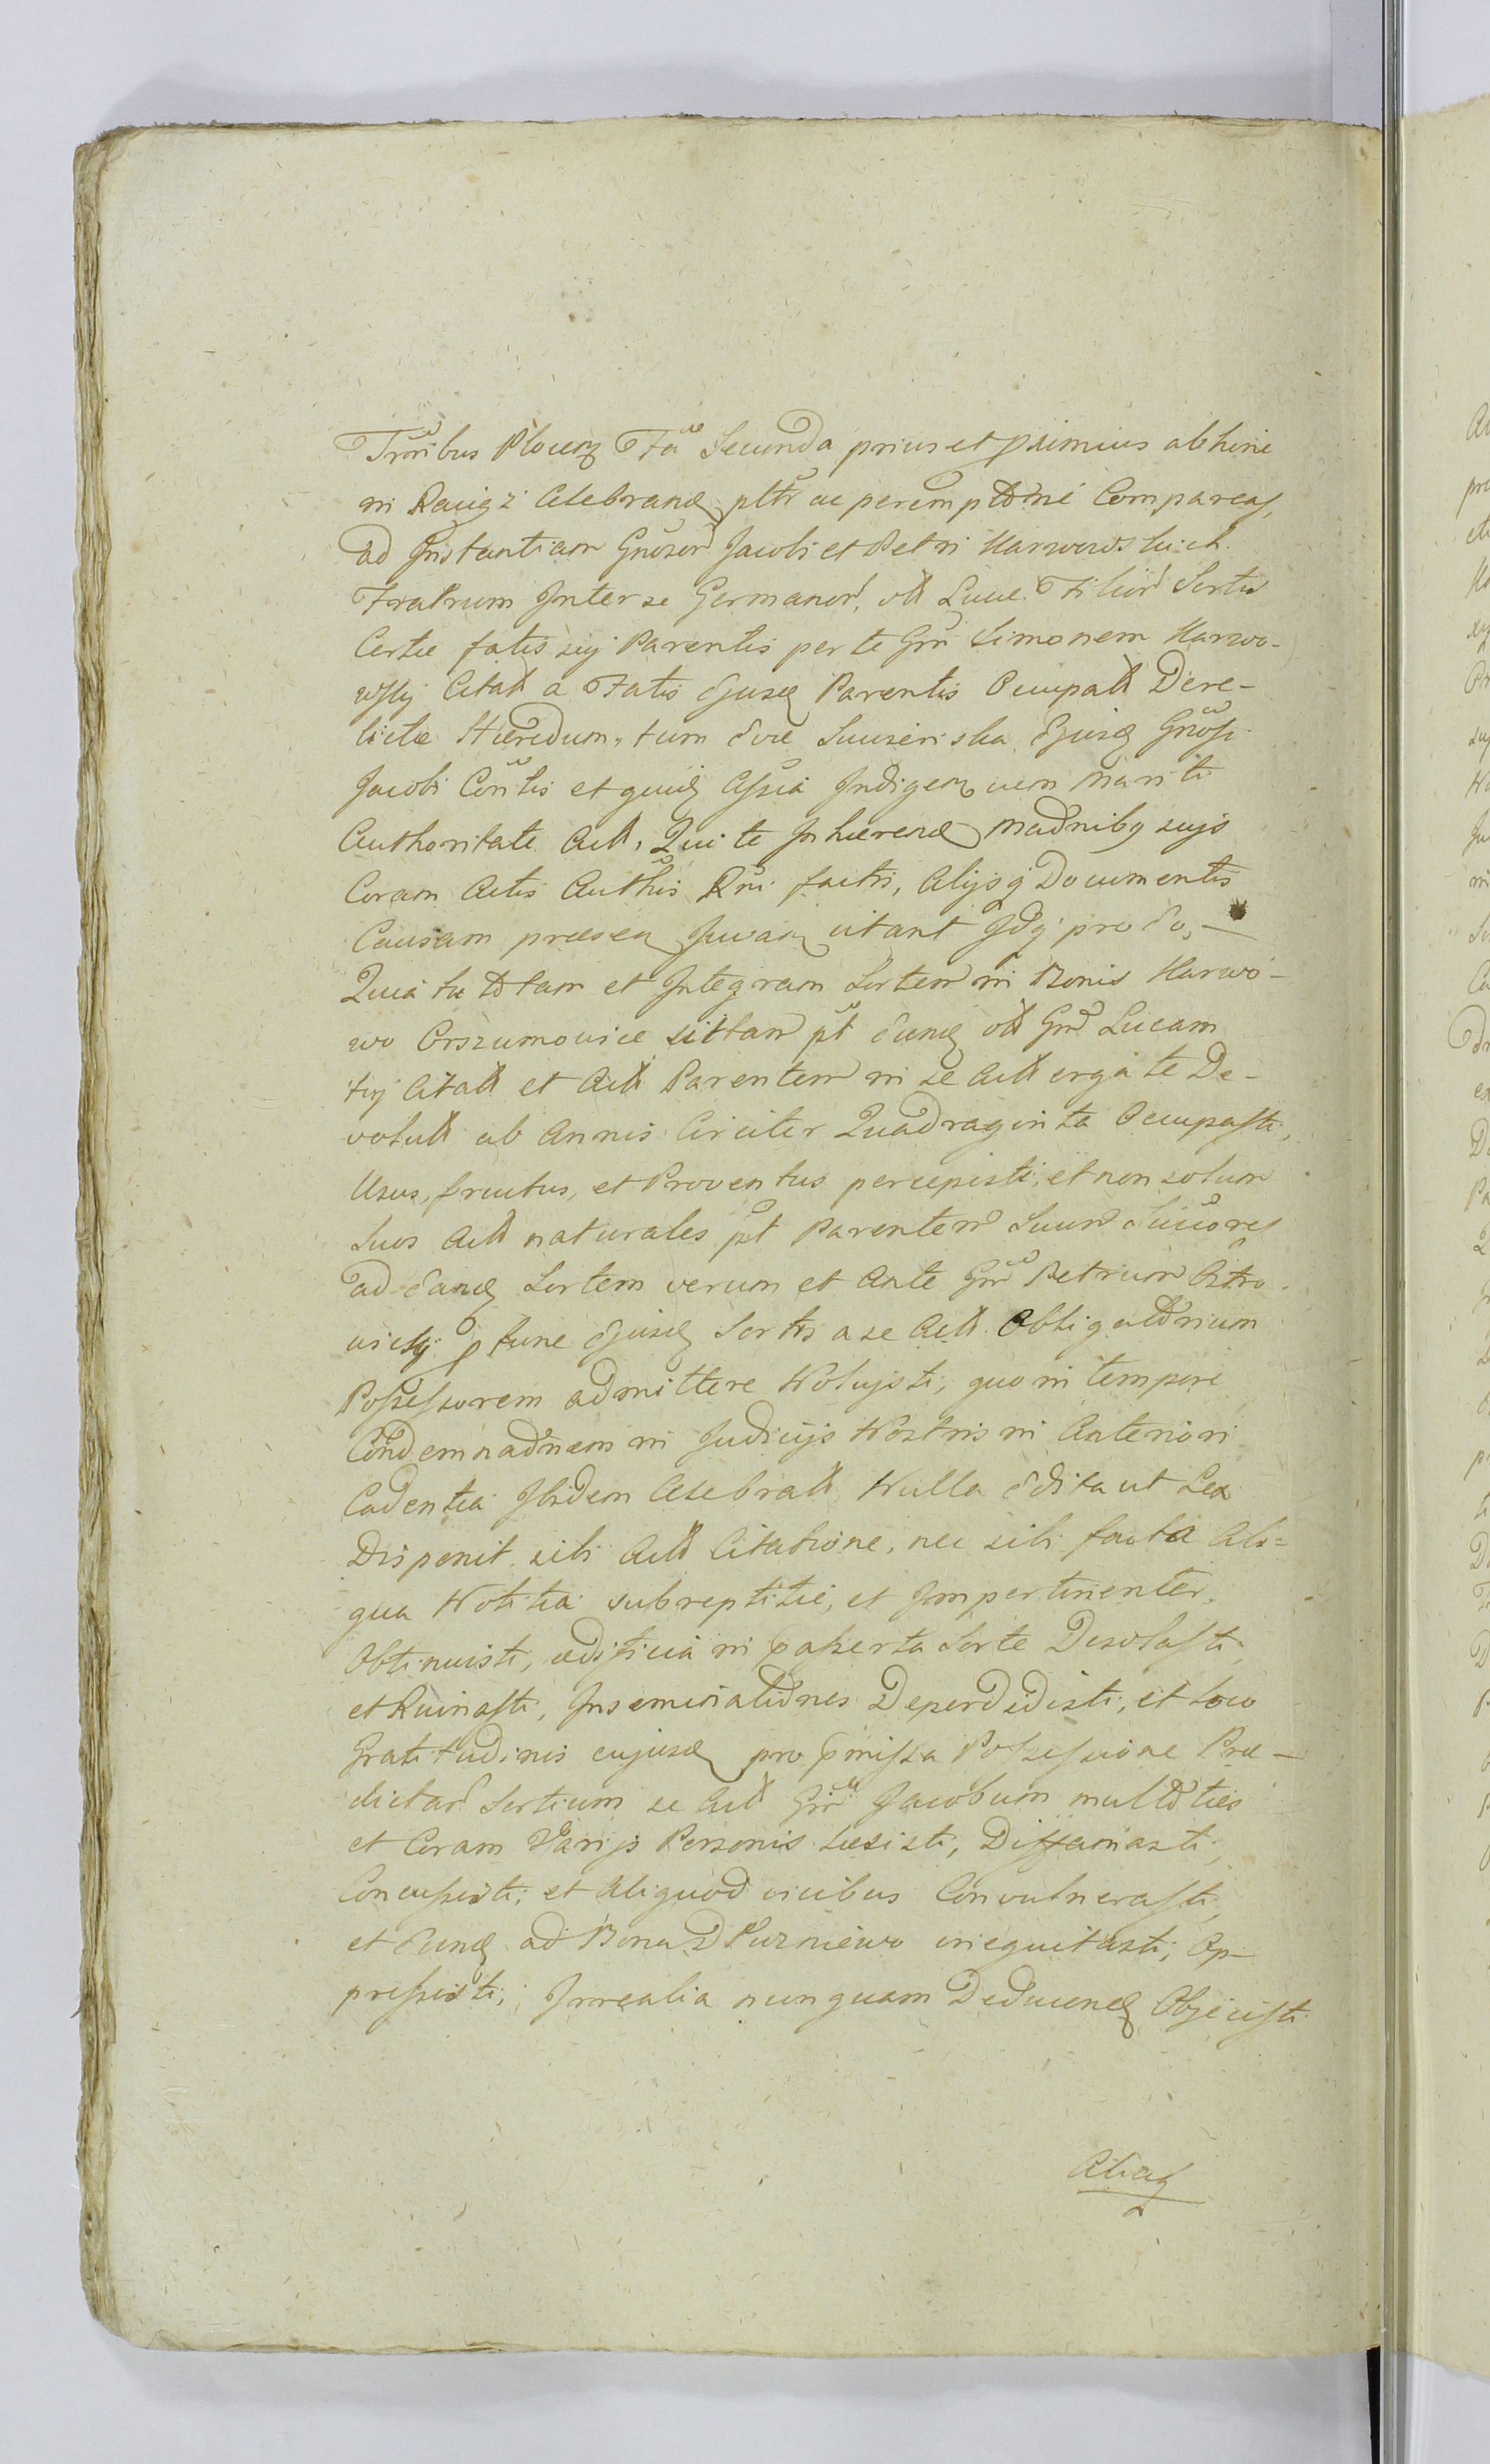 Trribus Plocen Fa Secunda prius et pximius abhinc
in Raciąż Celebrand pltr ac peremptorie Compareas,
ad Instantiam Gnosor Jacobi et Petri Karwowskich
Fratrum Inter se Germanor, olt Lucae Filior Sortis
Certae fatis sui Parentis per te Gm Simonem Karwo-
wskj Citatt a Fatis Ejusd Parentis Occupatt Dere-
lictae Haeredum, tum Evae Ejusd Gnosi
Jacobi Contis et quid Assia Indigen uem Mariti
Authoritate Actt, Qui te Inhaerend Madnibq suijs
Coram Actis Authis Rni factis, Alijsq Documentis
Causam praesen Juvan citant Idq pro Eo, —
Quia tu totam et Integram Sortem in Bonis Karwo-
wo Orszumowice sittam pt Eund olt Gm Lucam
tuj Citatt et Actt Parentem in se Actt erga te De-
volutt ab Annis Circiter Quadraginta Occupasti,
Usus, fructus, et Proventus percepisti, et non solum
Suos Actt naturales pt Parentem Suum Succores
ad Eand Sortem verum et Ante Gm Petrum Ostro-
wickj p tunc Ejusd Sortis a se Actt Obligatorium
Possessorem admittere Nolujsti, quo in tempore
Condemnadnem in Judicijs Nostris in Anteriori
Cadentia Ibidem Celebratt Nulla Edita ut Lex
Disponit sibi Actt Citatione, nec sibi facta Ali=
qua Notitia subreptitie, et Impertinenter,
Obtinuisti, aedificia in passerta Sorte Desolasti,
et Ruinasti, Inseminatidnes Deperdidisti, et loco
Gratitudinis cujusd pro pmissa Possessione Prae-
dictar Sortium se Actt Gm Jacobum multoties
et Coram Varijs Personis laesisti, Diffamasti,
Concussisti, et Aliquod vicibus Convulnerasti,
et Eund ad Bona D Puzniewo inequitasti, Op-
pressisti, Irrealia nunquam Deducend Objecisti
Aliaq